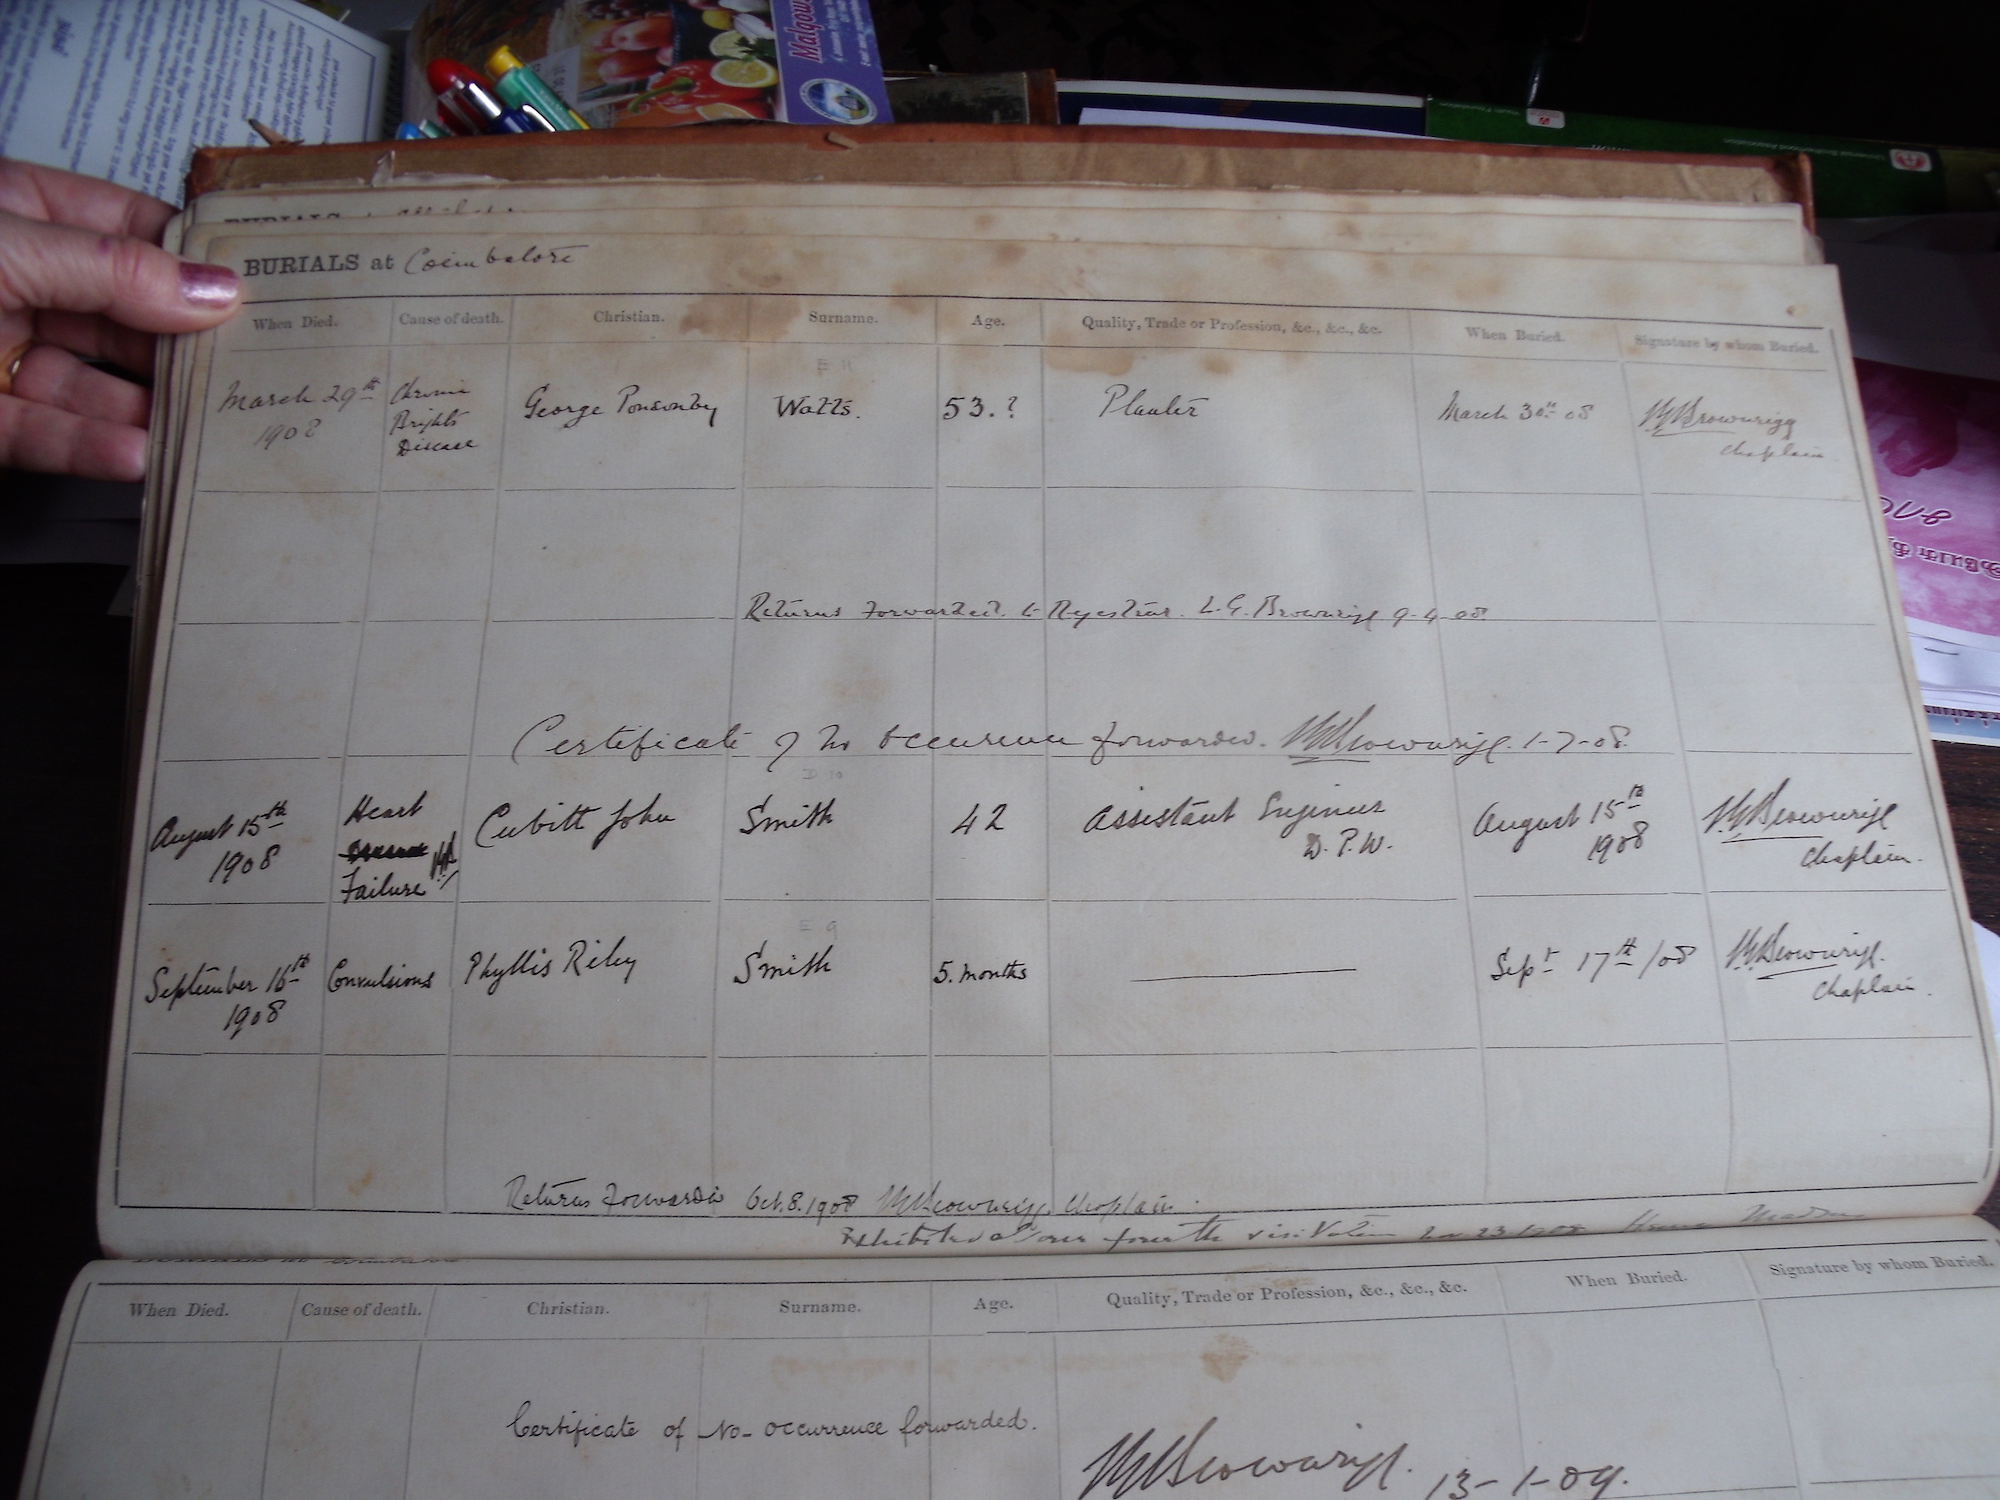 Malgow
BURIALS at Coimbatore
When Died. Cause of death. Christian. Surname. Age. Quality, Trade or Profession, &c., &c., &c. When Buried. Signature by whom Buried.
E 11
March 29th 1908 Chronic Brights Disease George Ponsonby Watts. 53.? Planter March 30th 08 Brownrigg Chaplain
Returns Forwarded to Registrar. L.G. Brownrigg 9-4-08
Certificate of No Occurrence forwarded. Brownrigg. 1-7-08.
D 10
August 15th 1908 Heart Failure Cubitt John Smith 42 Assistant Engineer D.P.W. August 15th 1908 Brownrigg Chaplain.
E 9
September 16th 1908 Convulsions Phyllis Riley Smith 5. months Sept 17th /08 Brownrigg. Chaplain.
Returns Forwarded Oct. 8. 1908 Brownrigg Chaplain.
Exhibited at our fourth visitation 23 1908
When Died. Cause of death. Christian. Surname. Age. Quality, Trade or Profession, &c., &c., &c. When Buried. Signature by whom Buried.
Certificate of No- occurrence forwarded.
Brownrigg. 13-1-09.